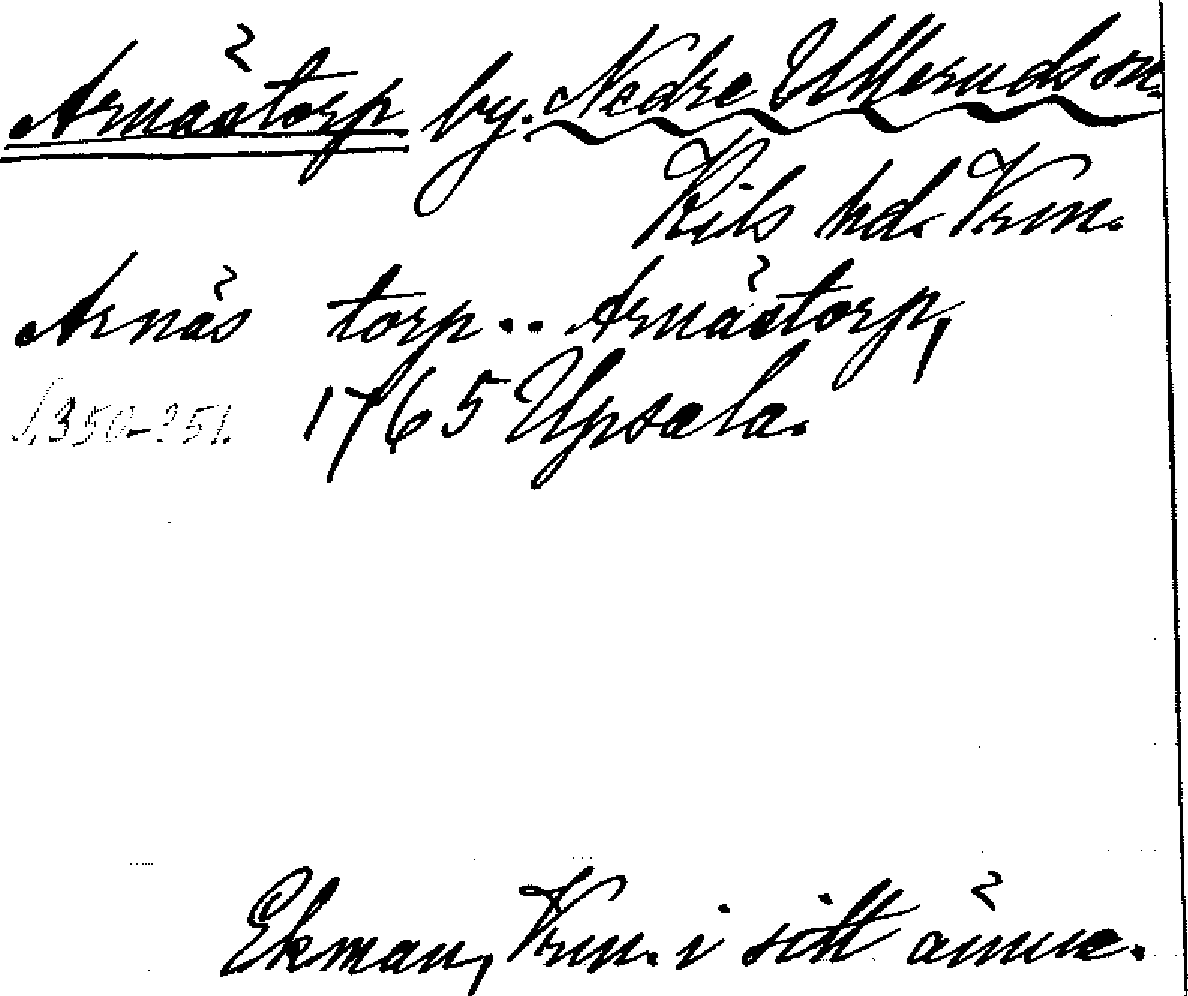 Arnästorp by. Nedre Ulleruds sn.
Kils hd. Vrm.
Arnäs torp.. Arnästorp,
s. 350-351. 1765 Upsala.
Ekman, Vrm. i sitt ämne.